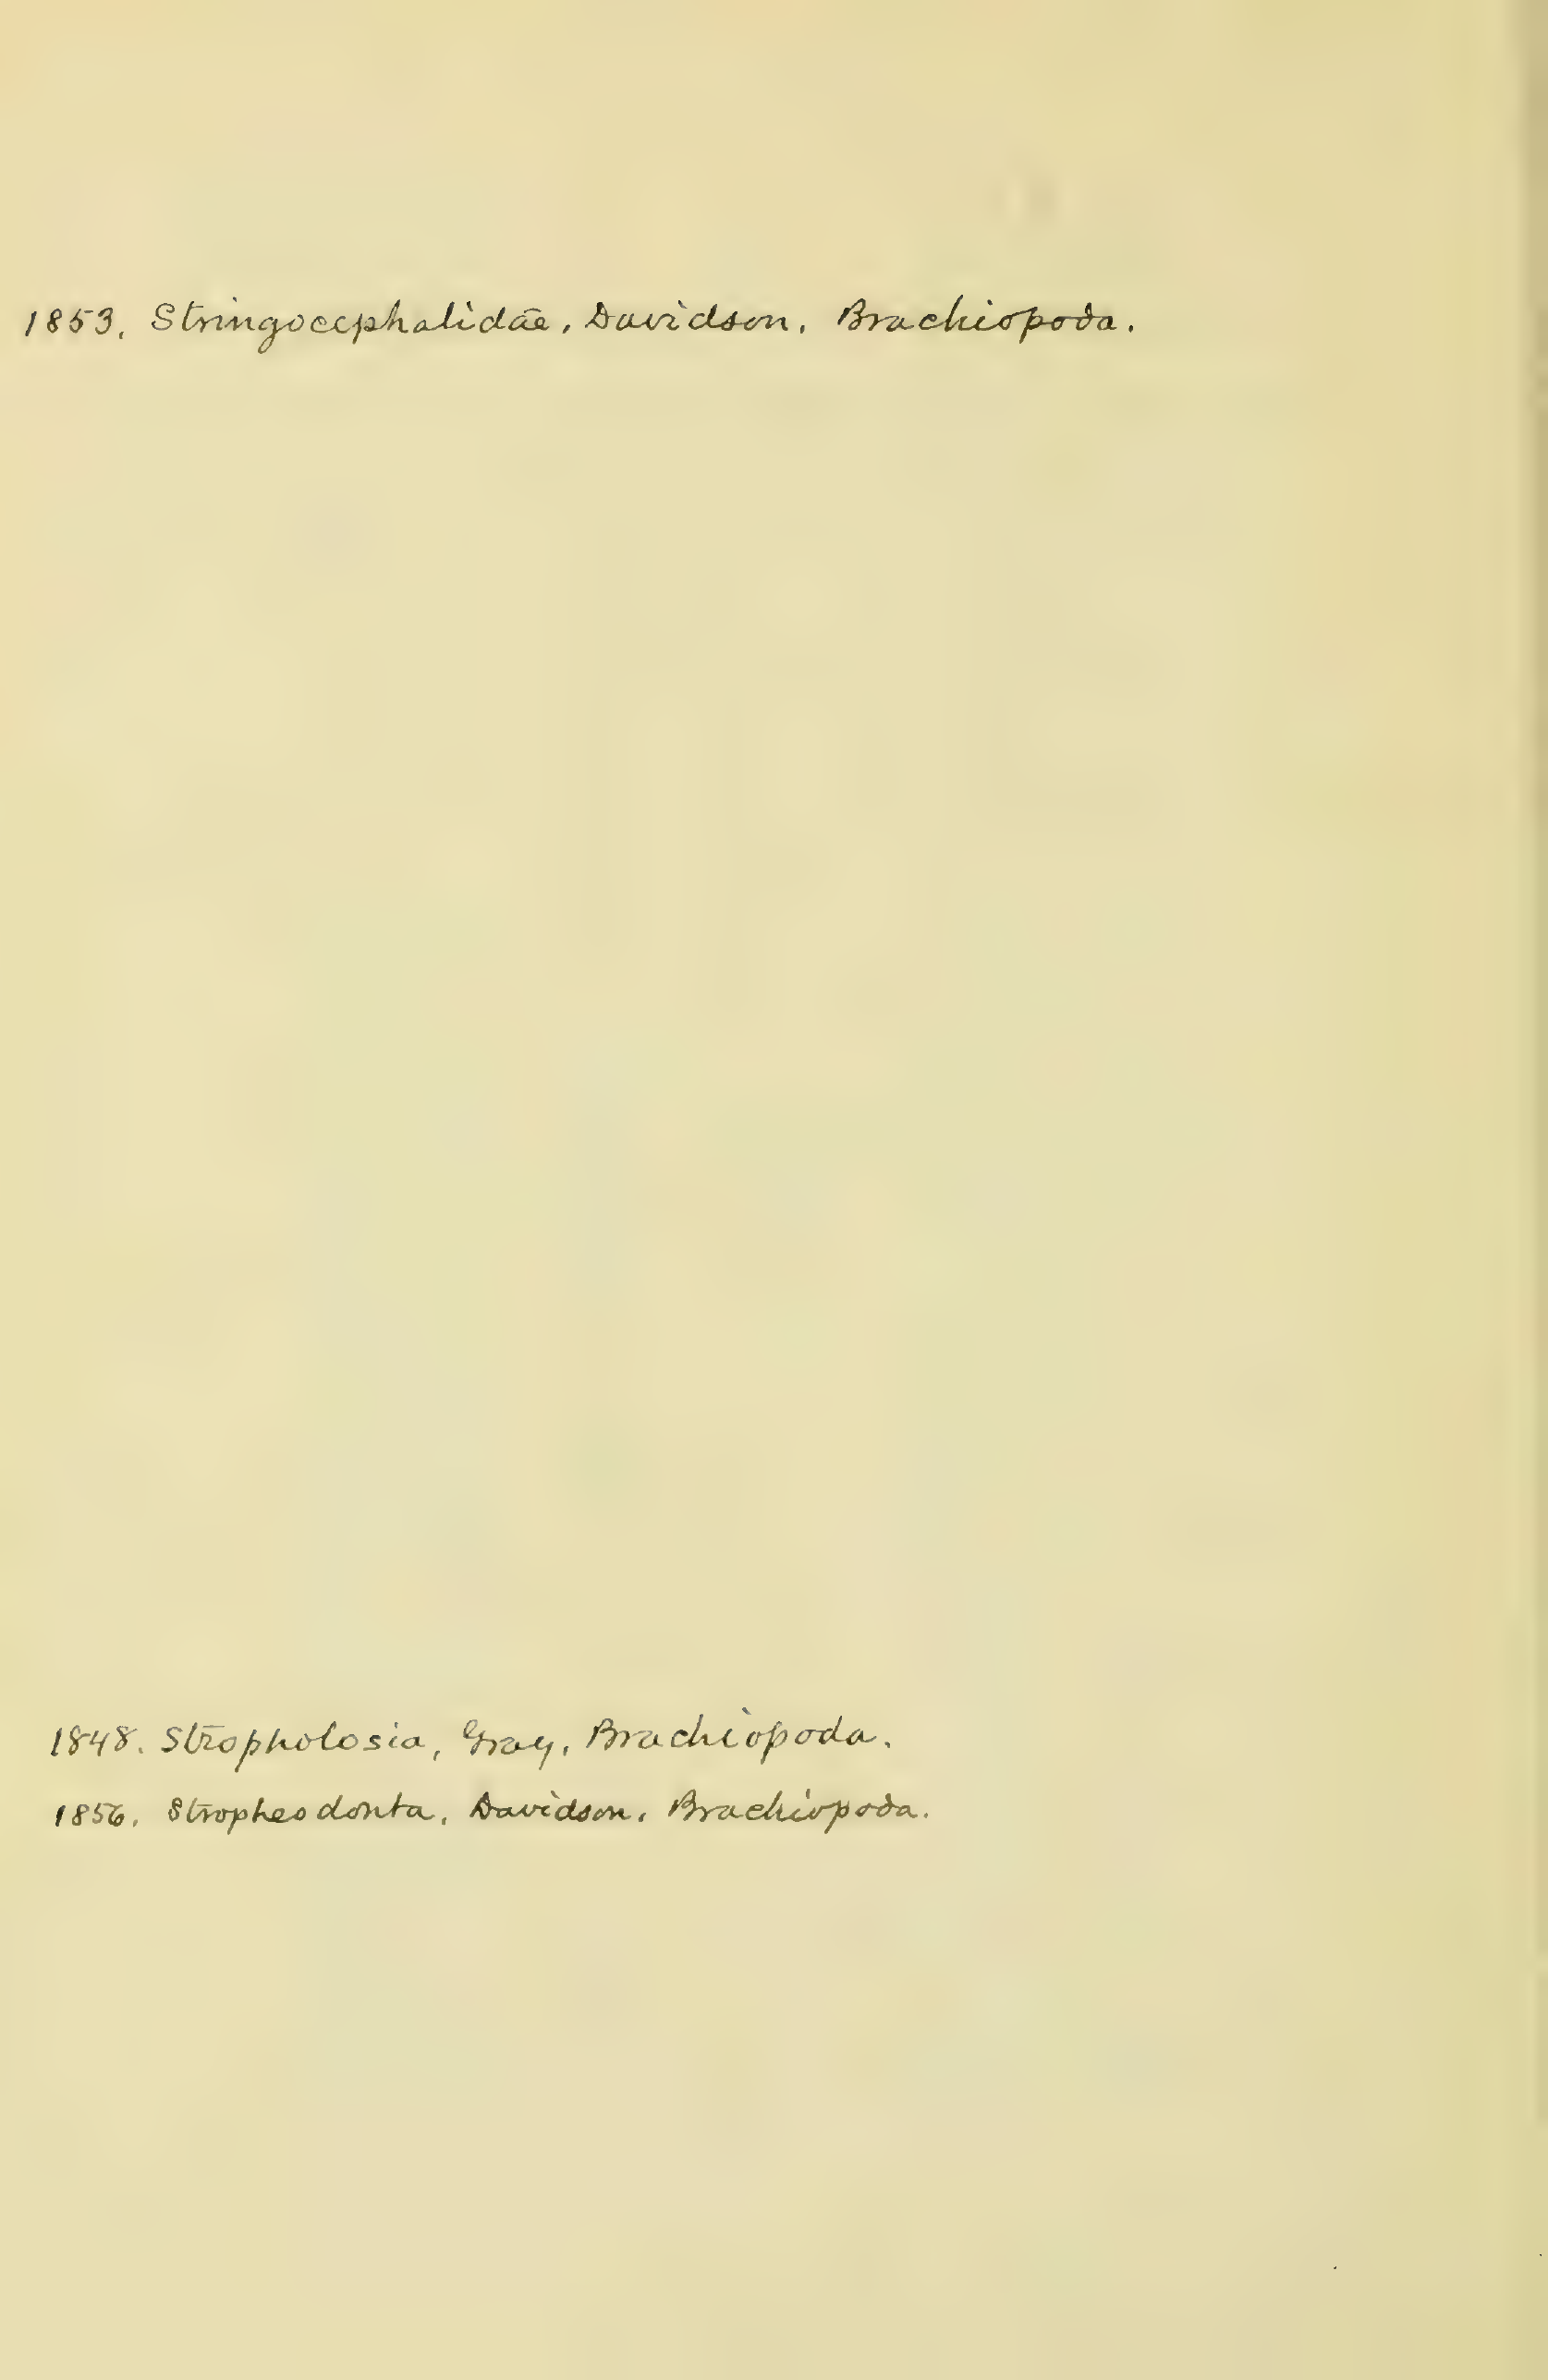 1853. Stringocephalidae, Davidson. Brachiopoda.
1848. Stropholosia, Gray, Brachiopoda.
1856. Stropheodonta, Davidson. Brachiopoda.